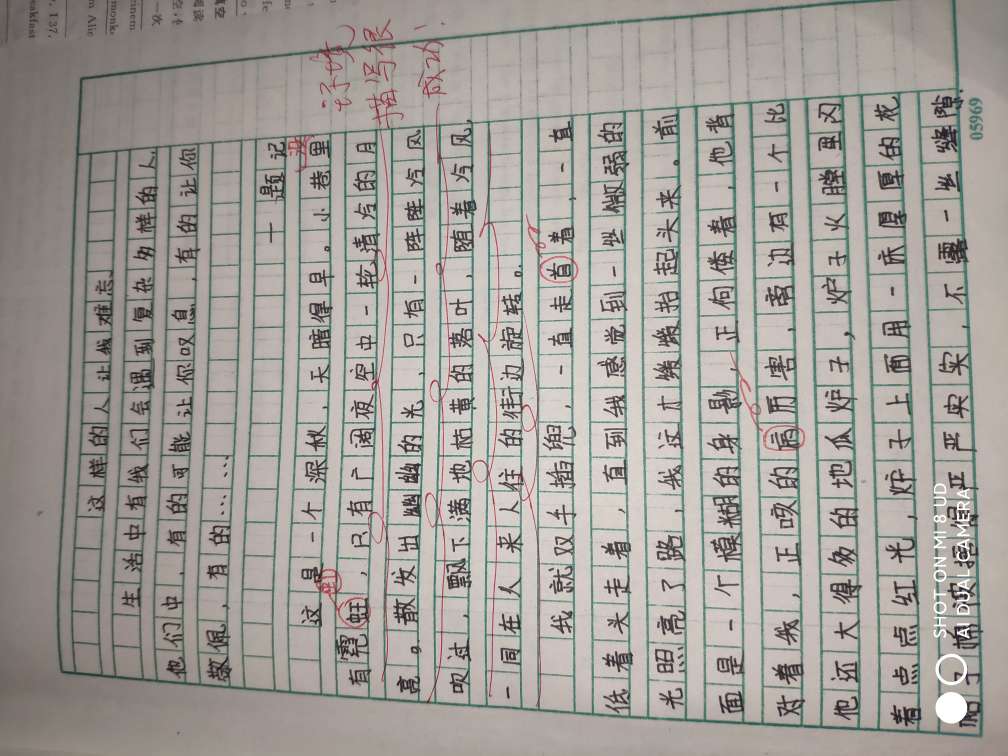 这样的人让我难忘
生活中有我们会遇到复杂多样的人.
他们中，有的可能让你叹息，有的让你
敬佩，有的……
一题记
这是一个深秋，天暗得早。小巷里
没
有霓虹，只有广阔夜空中一轮清冷的月
虹
亮。散发出幽幽的光，只有一阵阵冷风
吹过，飘下满地枯黄的落叶，随着冷风，
一同在人来人住的街边旋转。
我就双手插兜，一直走着，一直
低着头走着，直到我感觉到一些微弱的
光照亮了路，我这才缓缓抬起头来。前
面是一个模糊的身影，正佝偻着，他背
对着我，正咳的厉害，离边有一个比
他还大得多的地瓜炉子，炉子火膛里闪
着点点红光，炉子上面用一床厚厚的花
严严实实，不露一丝缝隙.
好峰
描写很
成功！
05969
SHOT ON MI 8 UD
AI DUAL CAMERA
137.
eakfast
monks
m Alic
inem
一次